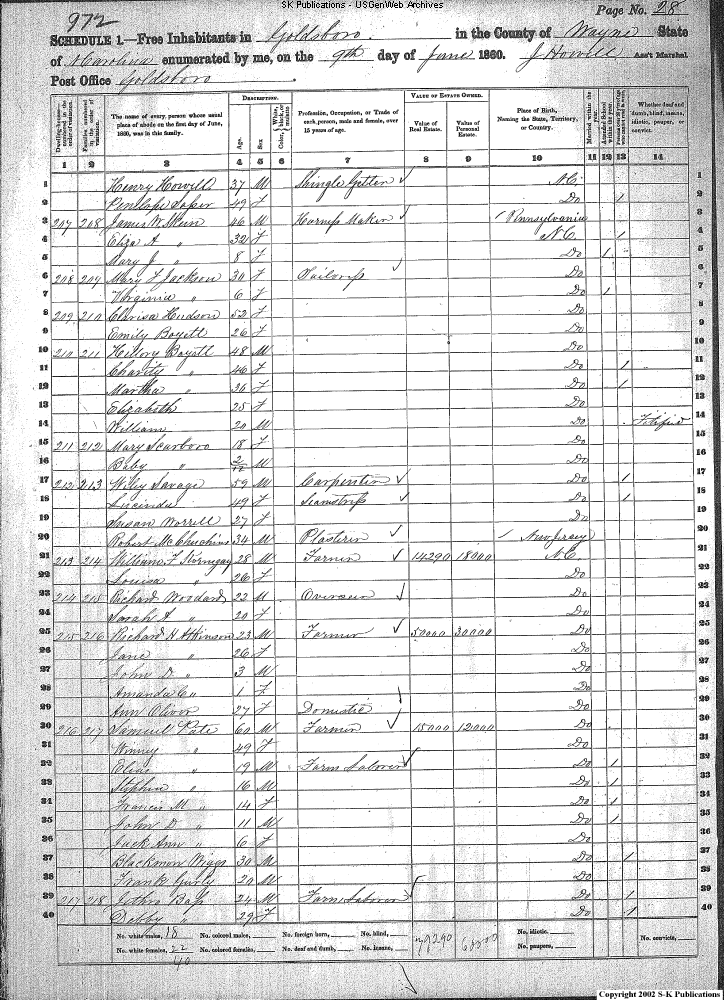 SK Publications - USGenWeb Archives
972
Page No. 28
SCHEDULE 1.—Free Inhabitants in Goldsboro in the County of Wayne State
of N Carolina enumerated by me, on the 9th day of June 1860. J Howell Ass't Marshal
Post Office Goldsboro
DESCRIPTION.
VALUE OF ESTATE OWNED.
The name of every person whose usual place of abode on the first day of June, 1860, was in this family.
Age.
Sex.
Color,
Profession, Occupation, or Trade of each person, male and female, over 15 years of age.
Value of Real Estate.
Value of Personal Estate.
Place of Birth, Naming the State, Territory, or Country.
Married within the year.
Attended School within the year.
Whether deaf and dumb, blind, insane, idiotic, pauper, or convict.
1 2 3 4 5 6 7 8 9 10 11 12 13 14
1 Henry Howell 37 M Shingle Getter N.C. 1
2 Penelope 49 F Do 1 2
3 207 208 James W. 46 M Harness Maker 1 Pennsylvania 3
4 Eliza A " 32 F N.C. 1 4
5 Mary J " 8 F Do 1 5
6 208 209 Mary F Jackson 30 F Tailoress Do 6
7 Virginia " 6 F Do 1 7
8 209 210 Clarisa Hudson 52 F Do 8
9 Emily Boyett 26 F Do 9
10 210 211 Hillory Boyett 48 M Do 10
11 Charity " 46 F Do 1 11
12 Martha " 36 F Do 1 12
13 Elizabeth 25 F Do 13
14 William 20 M Do 14
15 211 212 Mary Scarboro 18 F Do 15
16 Baby " 2/12 M Do 16
17 212 213 Wiley Savage 59 M Carpenter Do 1 17
18 Lucinda 49 F Seamstress Do 1 18
19 Susan Worrell 27 F Do 19
20 Robert McChutchins 34 M Plasterer 1 New Jersey 20
21 213 214 William F Kornegay 28 M Farmer 14290 18000 N.C. 21
22 Louisa " 26 F Do 22
23 214 215 Richard Woodard 22 M Overseer Do 23
24 Sarah A " 20 F Do 24
25 215 216 Richard H Atkinson 23 M Farmer 50000 30000 Do 25
26 Jane " 26 F Do 26
27 John D " 3 M Do 27
28 Amanda C " 1 F Do 28
29 Ann Oliver 27 F Domestic Do 29
30 216 217 Samuel Pate 60 M Farmer 15000 12000 Do 30
31 Winney " 49 F Do 31
32 Elias " 19 M Farm Laborer Do 1 32
33 Stephen " 16 M Do 1 33
34 Francis M " 14 F Do 1 34
35 John D " 11 M Do 1 35
36 Ann " 6 F Do 36
37 Blackmon Wiggs 30 M Do 1 37
38 Frank Gurly 20 M Do 38
39 217 218 Jethro Bass 24 M Farm Laborer Do 1 39
40 Debby " 29 F Do 1 40
No. white males, 18 No. colored males, No. foreign born, No. blind, 79290 60000 No. idiotic, No. convicts,
No. white females, 22 No. colored females, No. deaf and dumb, No. insane, No. paupers,
40
Copyright 2002 S-K Publications